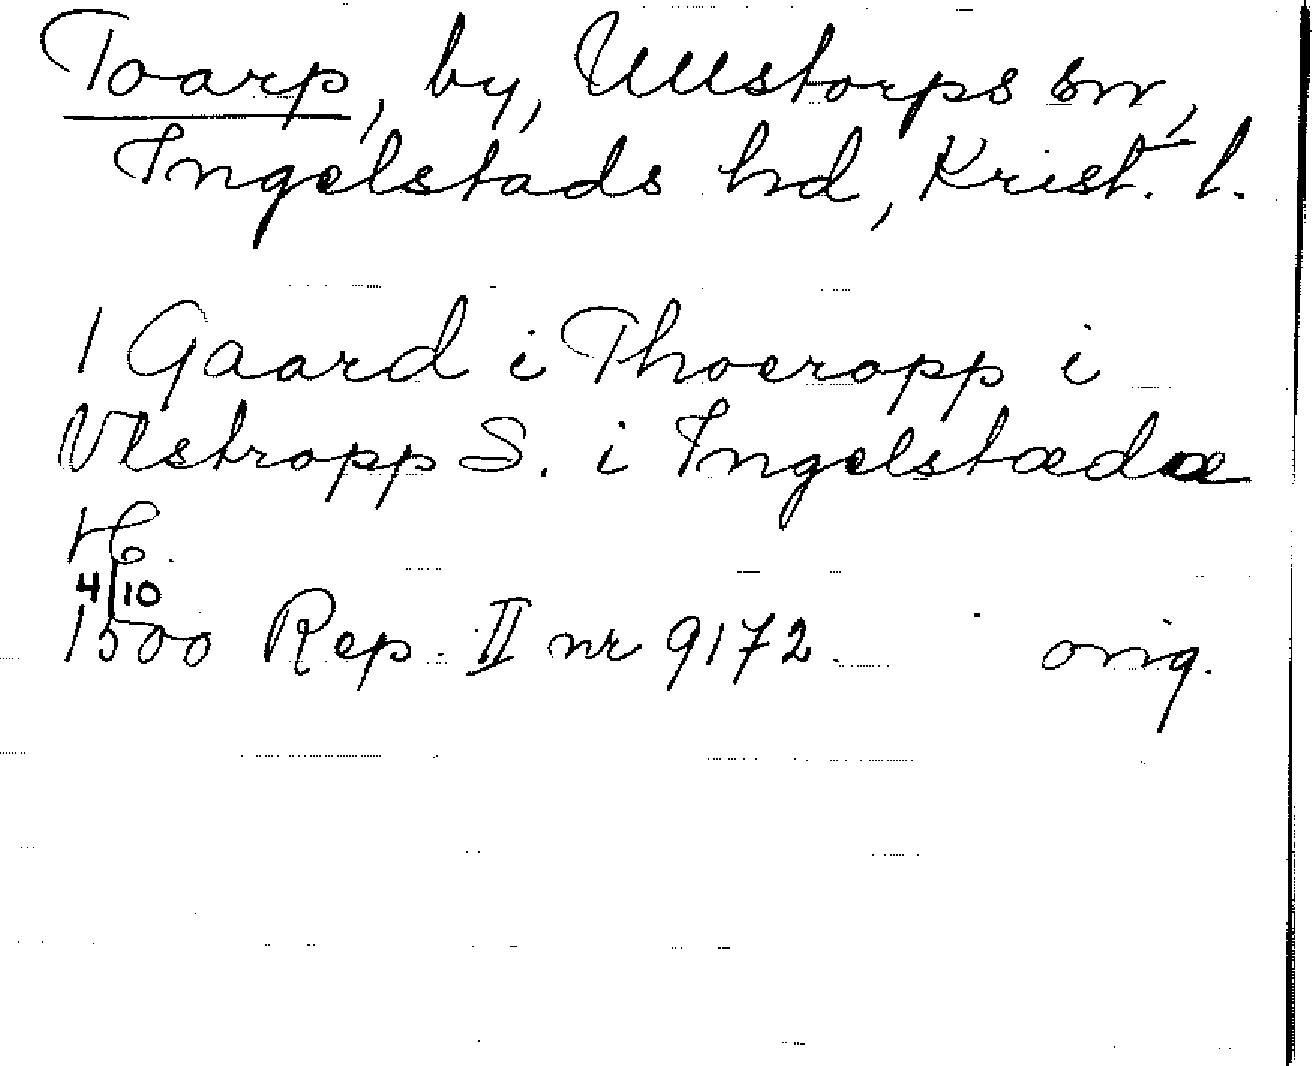 Toarp, by, Ullstorps sn,
Ingelstads hd, Krist. l.
1 Gaard i Thoeropp i
Vlstropp S. i Ingelstædæ
H.
4/10
1500 Rep. II nr 9172 orig.